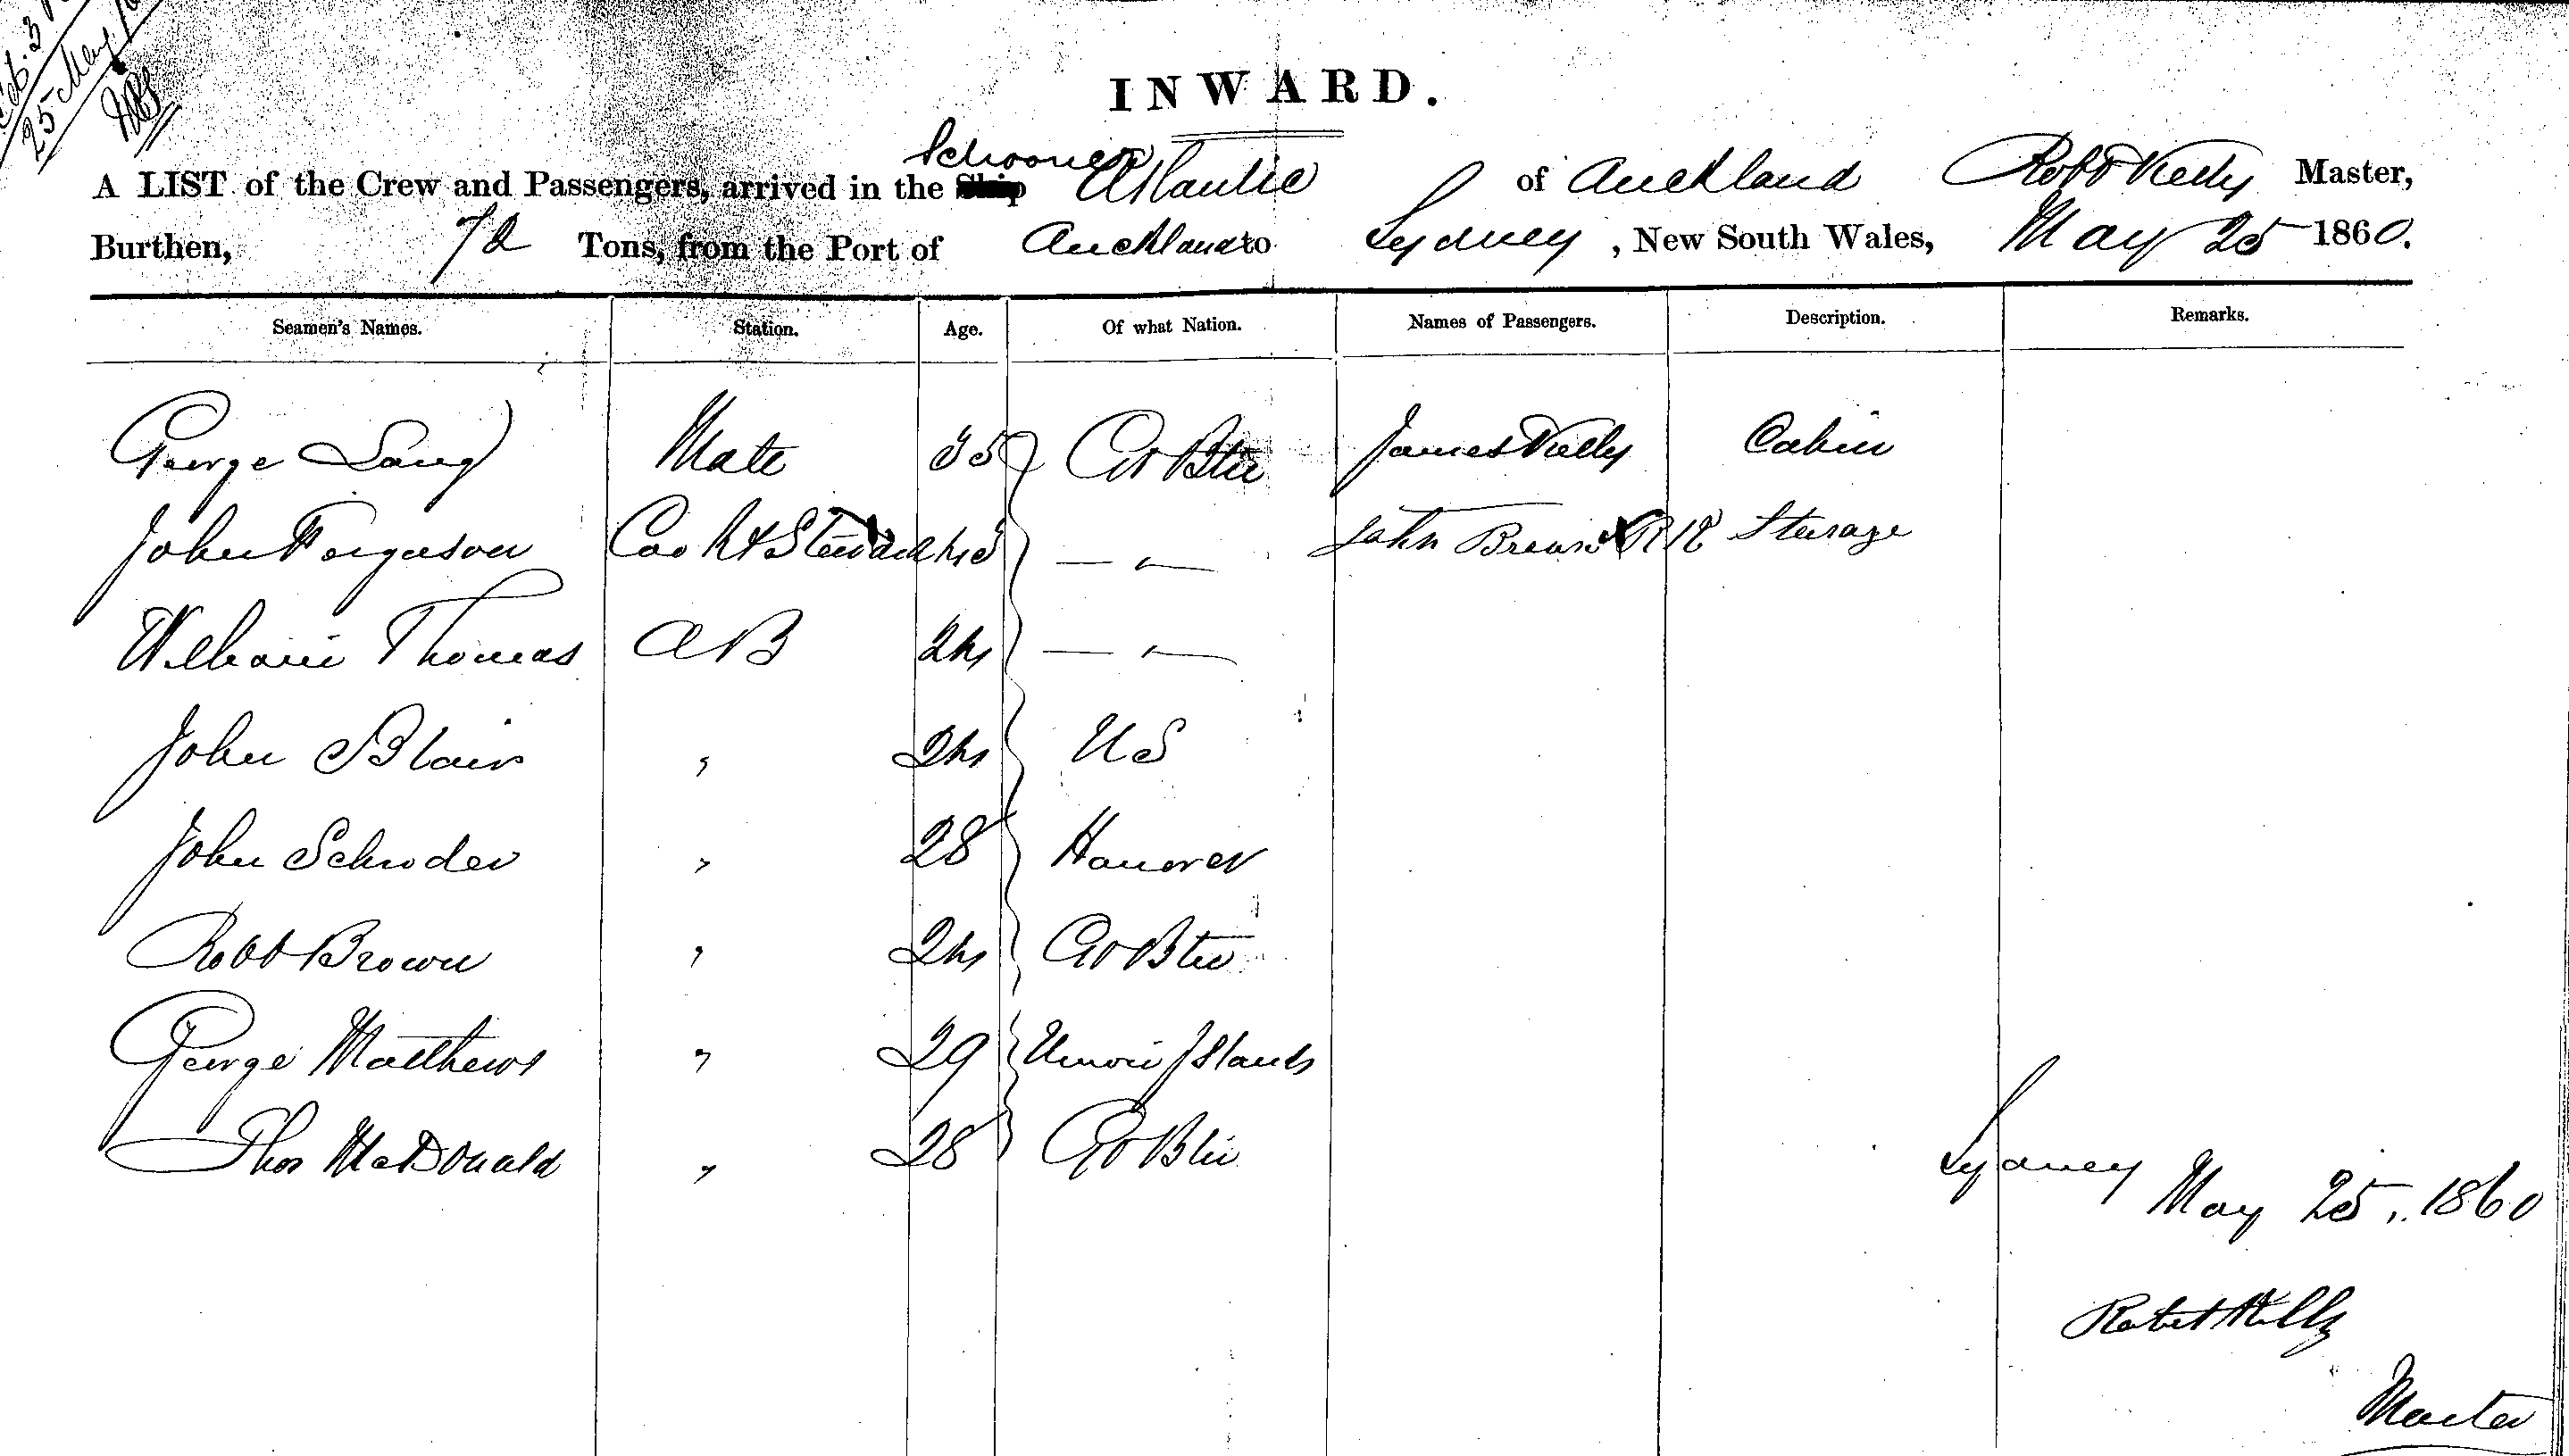 25 May
INWARD.
Schooner
A LIST of the Crew and Passengers, arrived in the Ship Atlantic of Auckland Robt Kelly Master,
Burthen, Tons, from the Port of Auckland to Sydney, New South Wales, May 25 1860.
Seamen's Names. Station. Age. Of what Nation. Names of Passengers. Description. Remarks.
George Mate 35 Gt Btn James Kelly Cabin
John Ferguson Cook & Steward — " — John Brown Sterage
William Thomas AB — " —
John Blair " US
John Schroder " 28 Hanover
Robt Brown " Gt Btn
George Matthews " 29 Islands
Thos McDonald " 28 Gt Btn
Sydney May 25, 1860
Robert Kelly
Master